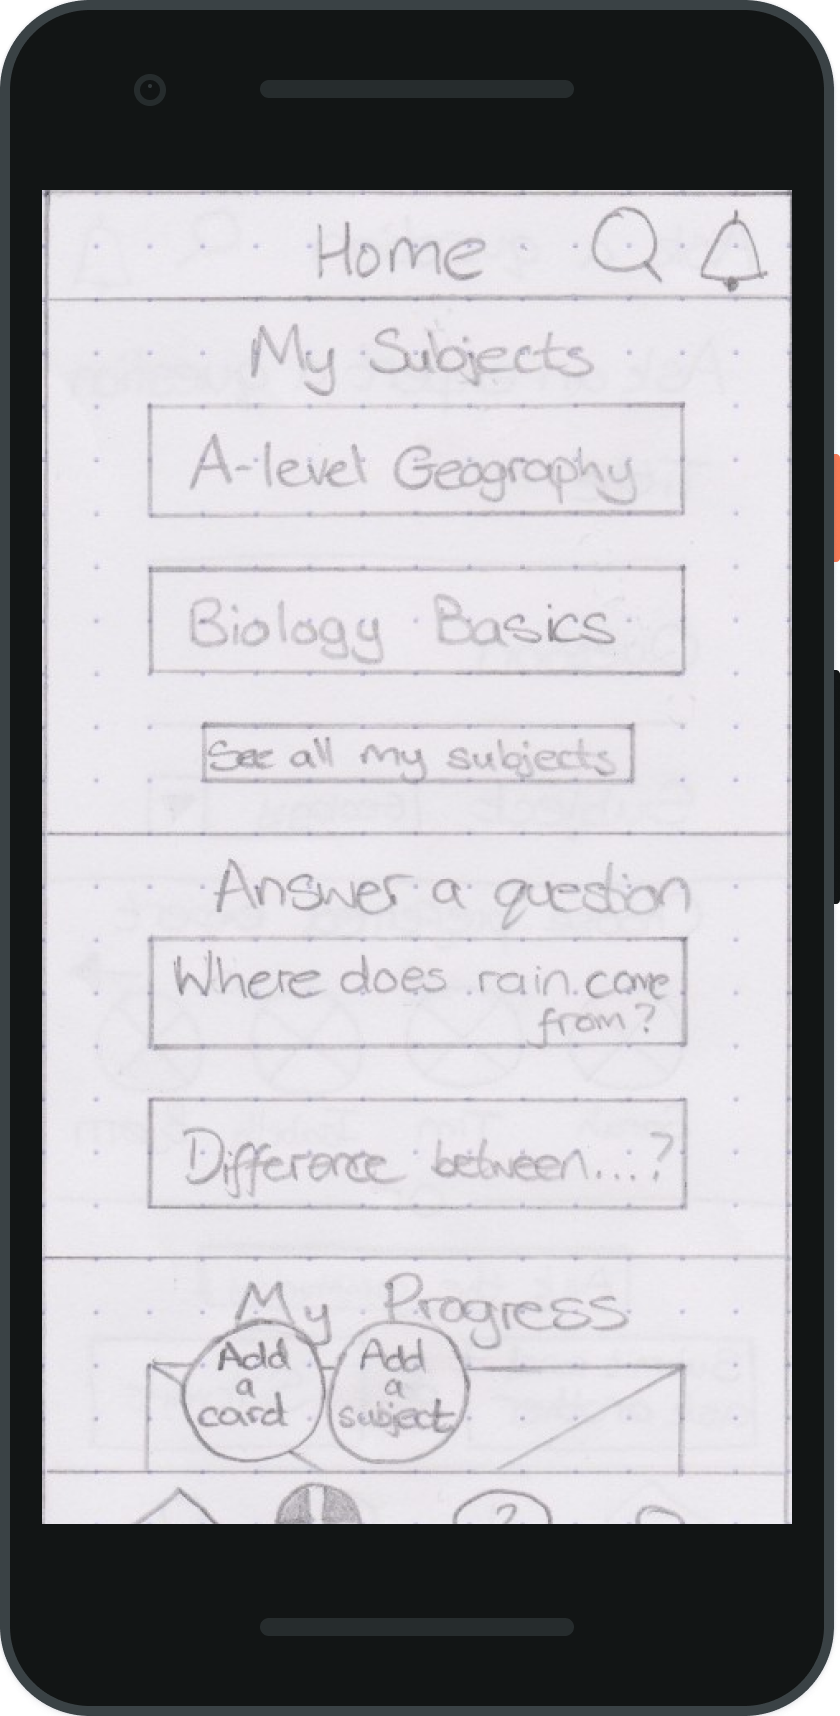 Home
My Subjects
A-level Geography
Biology Basics
See all my subjects
Answer a question
Where does rain come
from?
Difference between....?
My Progress
Add
a
card
Add
a
subject
?